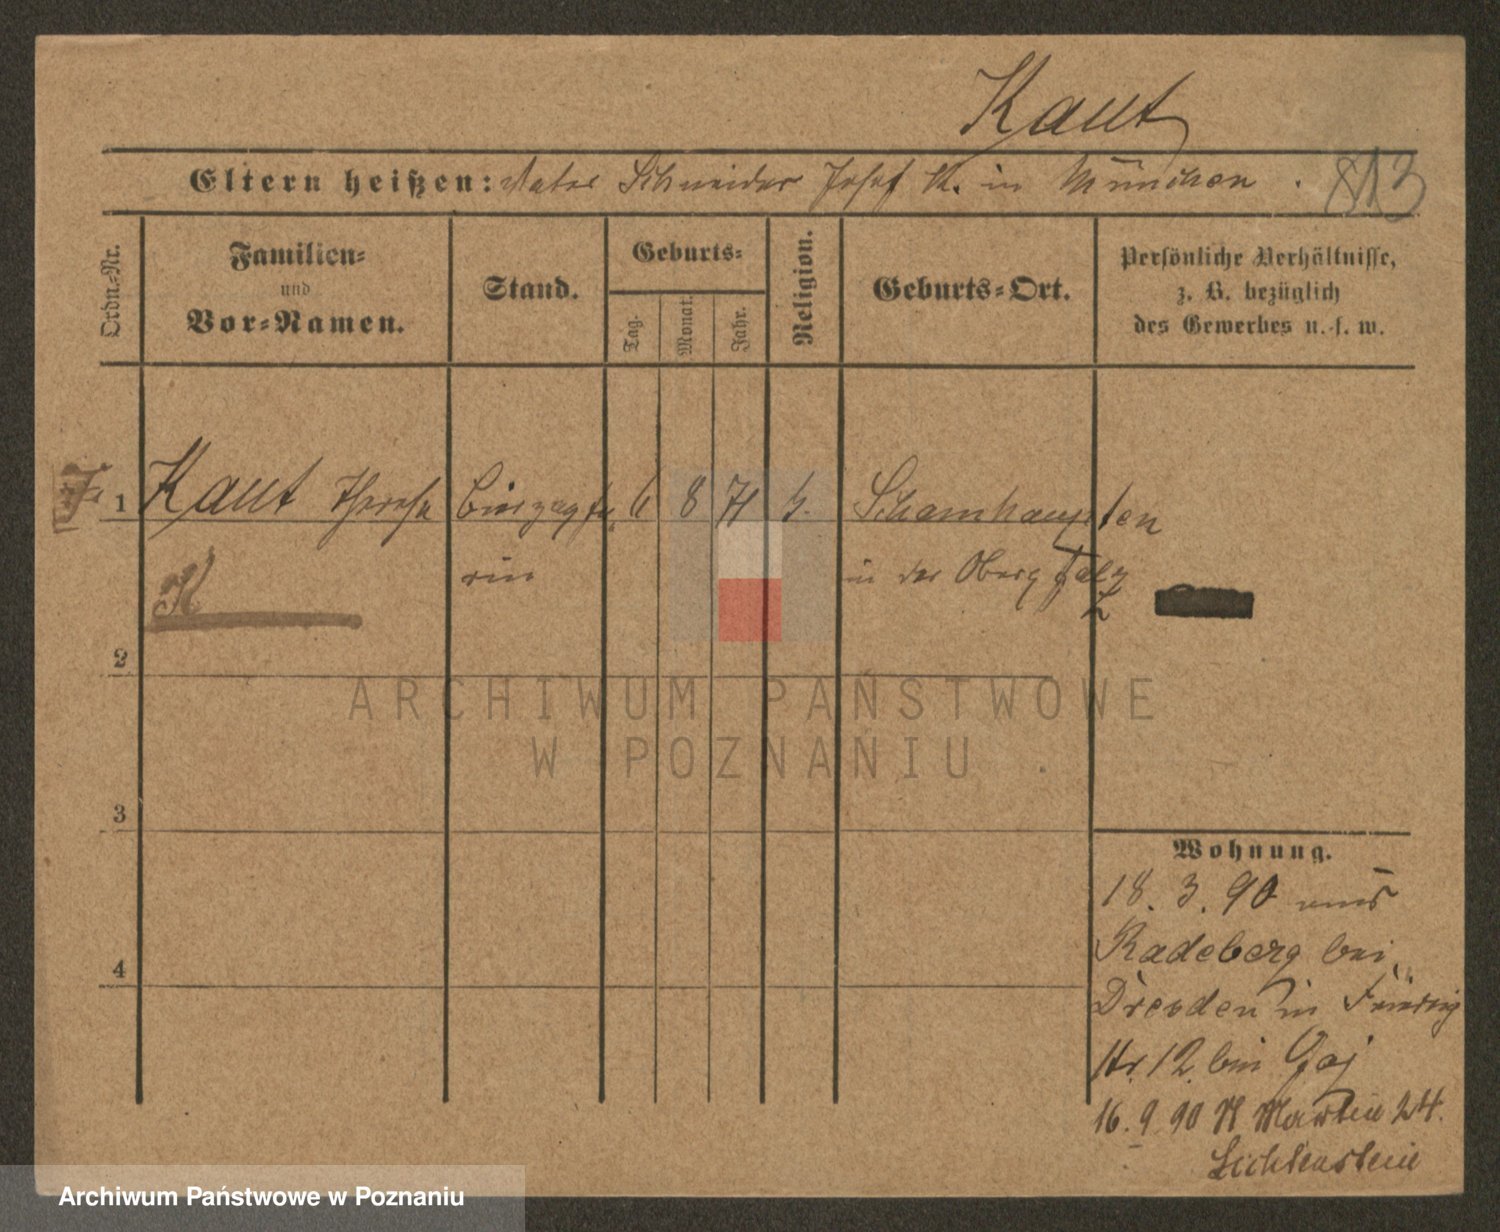 Kaut
Eltern heißen: Vater Schneider Josef K. in München.
813
Ordn.-Nr.
Familien-
und
Vor-Namen.
Stand.
Geburts-
Tag.
Monat.
Jahr.
Religion.
Geburts-Ort.
Persönliche Verhältnisse,
z. B. bezüglich
des Gewerbes u. s. w.
1 Kaut Therese 6 8 71 Schamhaupten
rin in der Oberpfalz
K
2
3
4
Wohnung.
18. 3. 90 aus
Radeberg bei
Dresden in
Nr. 12. bei Gaj
16. 9 90 St Martin 24.
Lichtenstein
ARCHIWUM PAŃSTWOWE
W POZNANIU
Archiwum Państwowe w Poznaniu